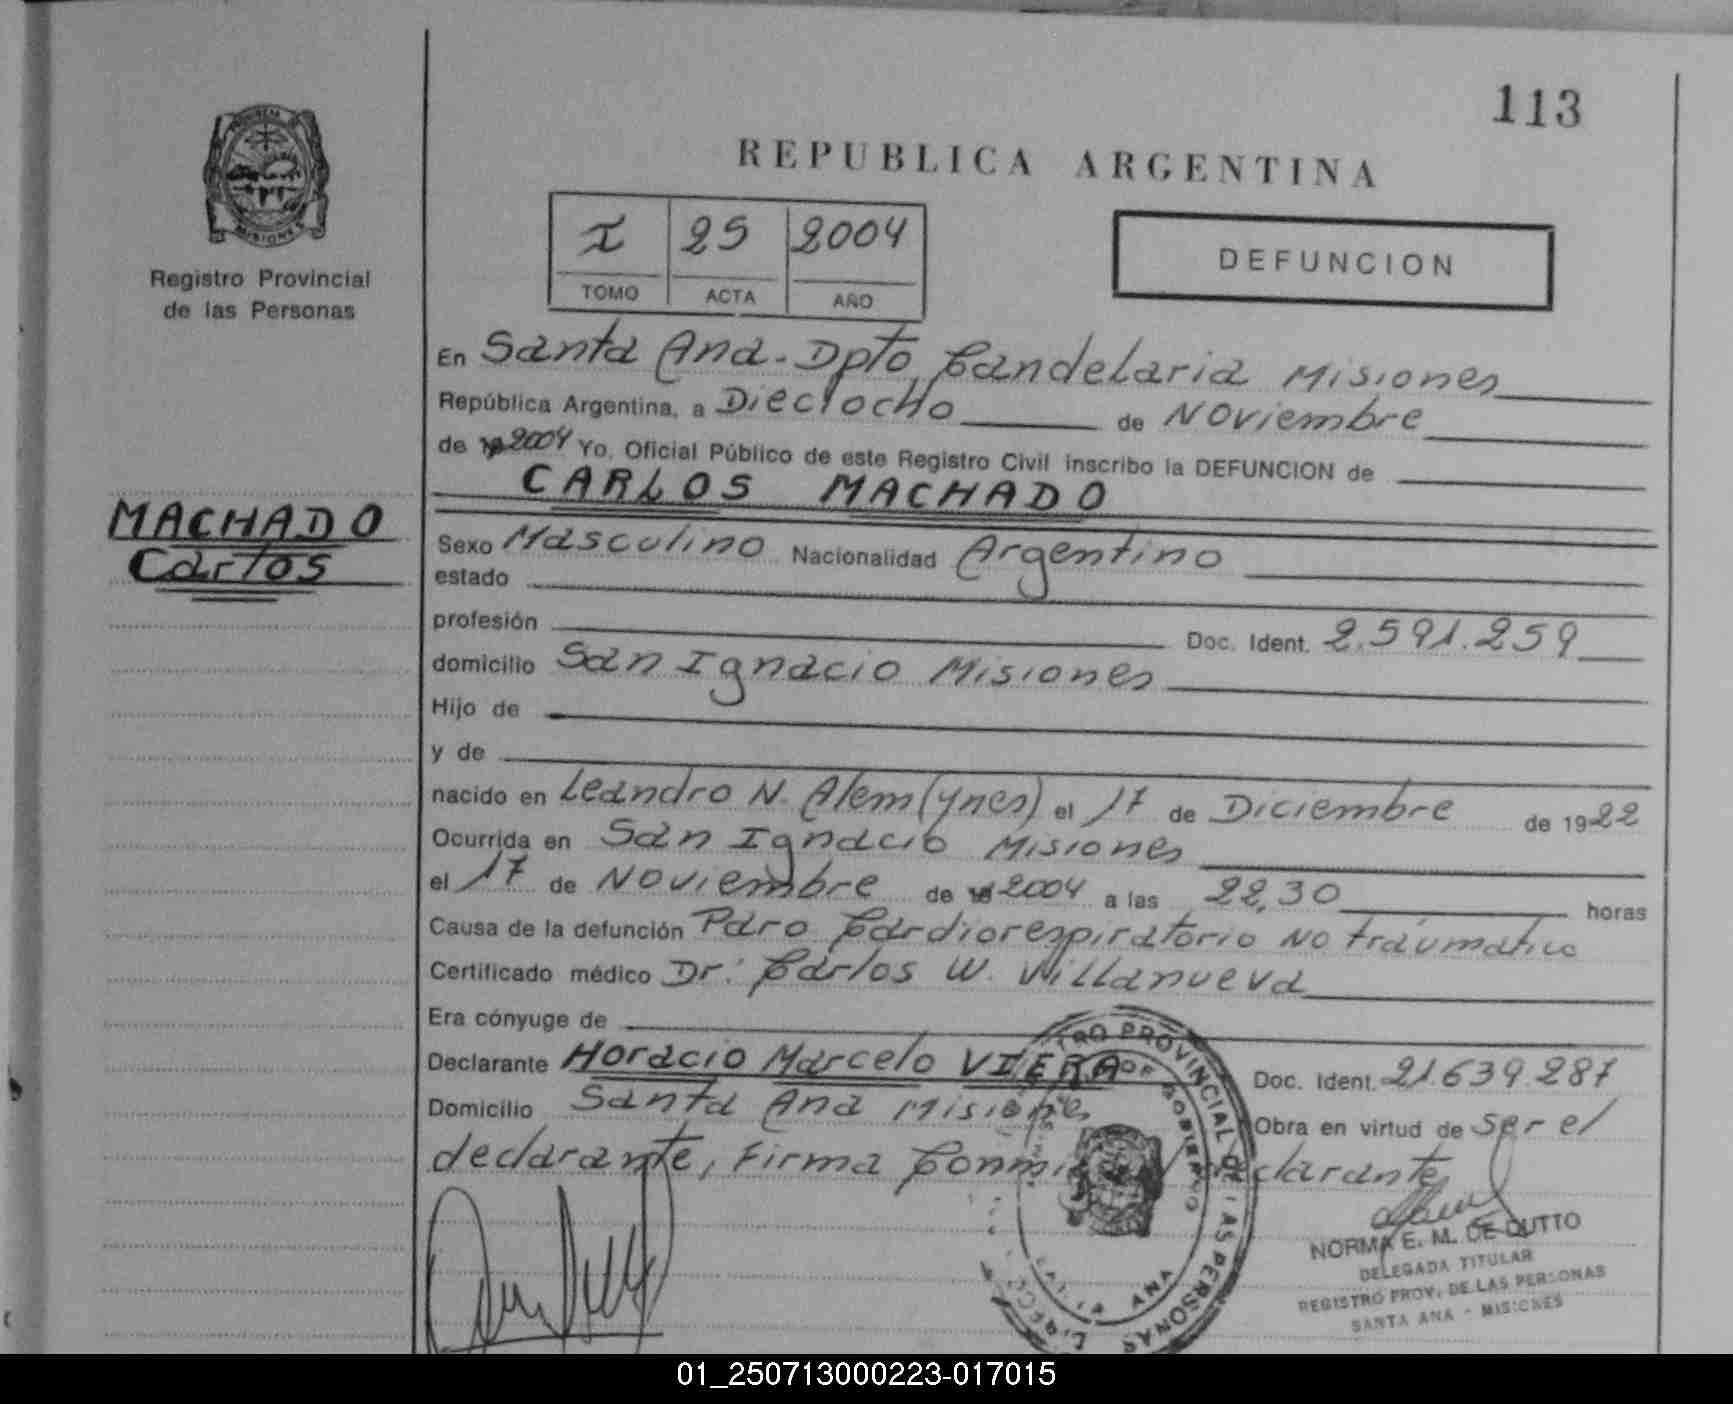 113
REPUBLICA ARGENTINA
PROVINCIA DE
MISIONES
Registro Provincial
de las Personas
I 25 2004
TOMO ACTA AÑO
DEFUNCION
En Santa Ana. Dpto Candelaria Misiones
República Argentina, a Dieciocho de Noviembre
de 19 2004 Yo, Oficial Público de este Registro Civil inscribo la DEFUNCION de
CARLOS MACHADO
MACHADO
Carlos
Sexo Masculino Nacionalidad Argentino
estado
profesión Doc. Ident. 2.591.259
domicilio San Ignacio Misiones
Hijo de
y de
nacido en Leandro N. Alem (Mnes) el 17 de Diciembre de 1922
Ocurrida en San Ignacio Misiones
el 17 de Noviembre de 2004 a las 22,30 horas
Causa de la defunción Paro Cardiorespiratorio No traumatico
Certificado médico Dr: Carlos W. Villanueva
Era cónyuge de
Declarante Horacio Marcelo VIERA Doc. Ident. 21.639.287
Domicilio Santa Ana Misiones Obra en virtud de ser el
declarante, Firma Conmigo declarante
PROVINCIAL DE LAS PERSONAS
ANA
NORMA E. M. DE DUTTO
DELEGADA TITULAR
REGISTRO PROV. DE LAS PERSONAS
SANTA ANA - MISIONES
01_250713000223-017015